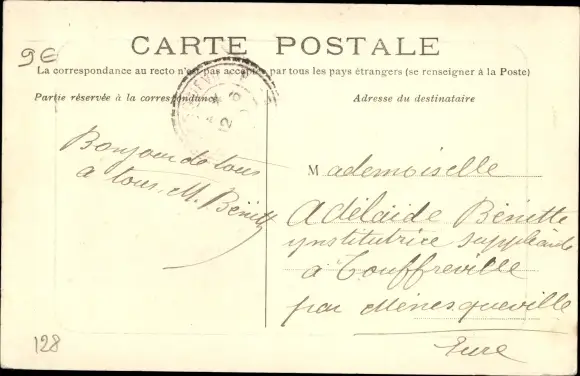 9€
CARTE POSTALE
La correspondance au recto n'est pas acceptée par tous les pays étrangers (se renseigner à la Poste)
Partie réservée à la correspondance
Adresse du destinataire
12
6
Bonjour de tous
a tous. M. Bénitte
Mademoiselle
Adélaide Bénitte
ynstitutrice suppléante
à Touffreville
par Ménesqueville
Eure
128